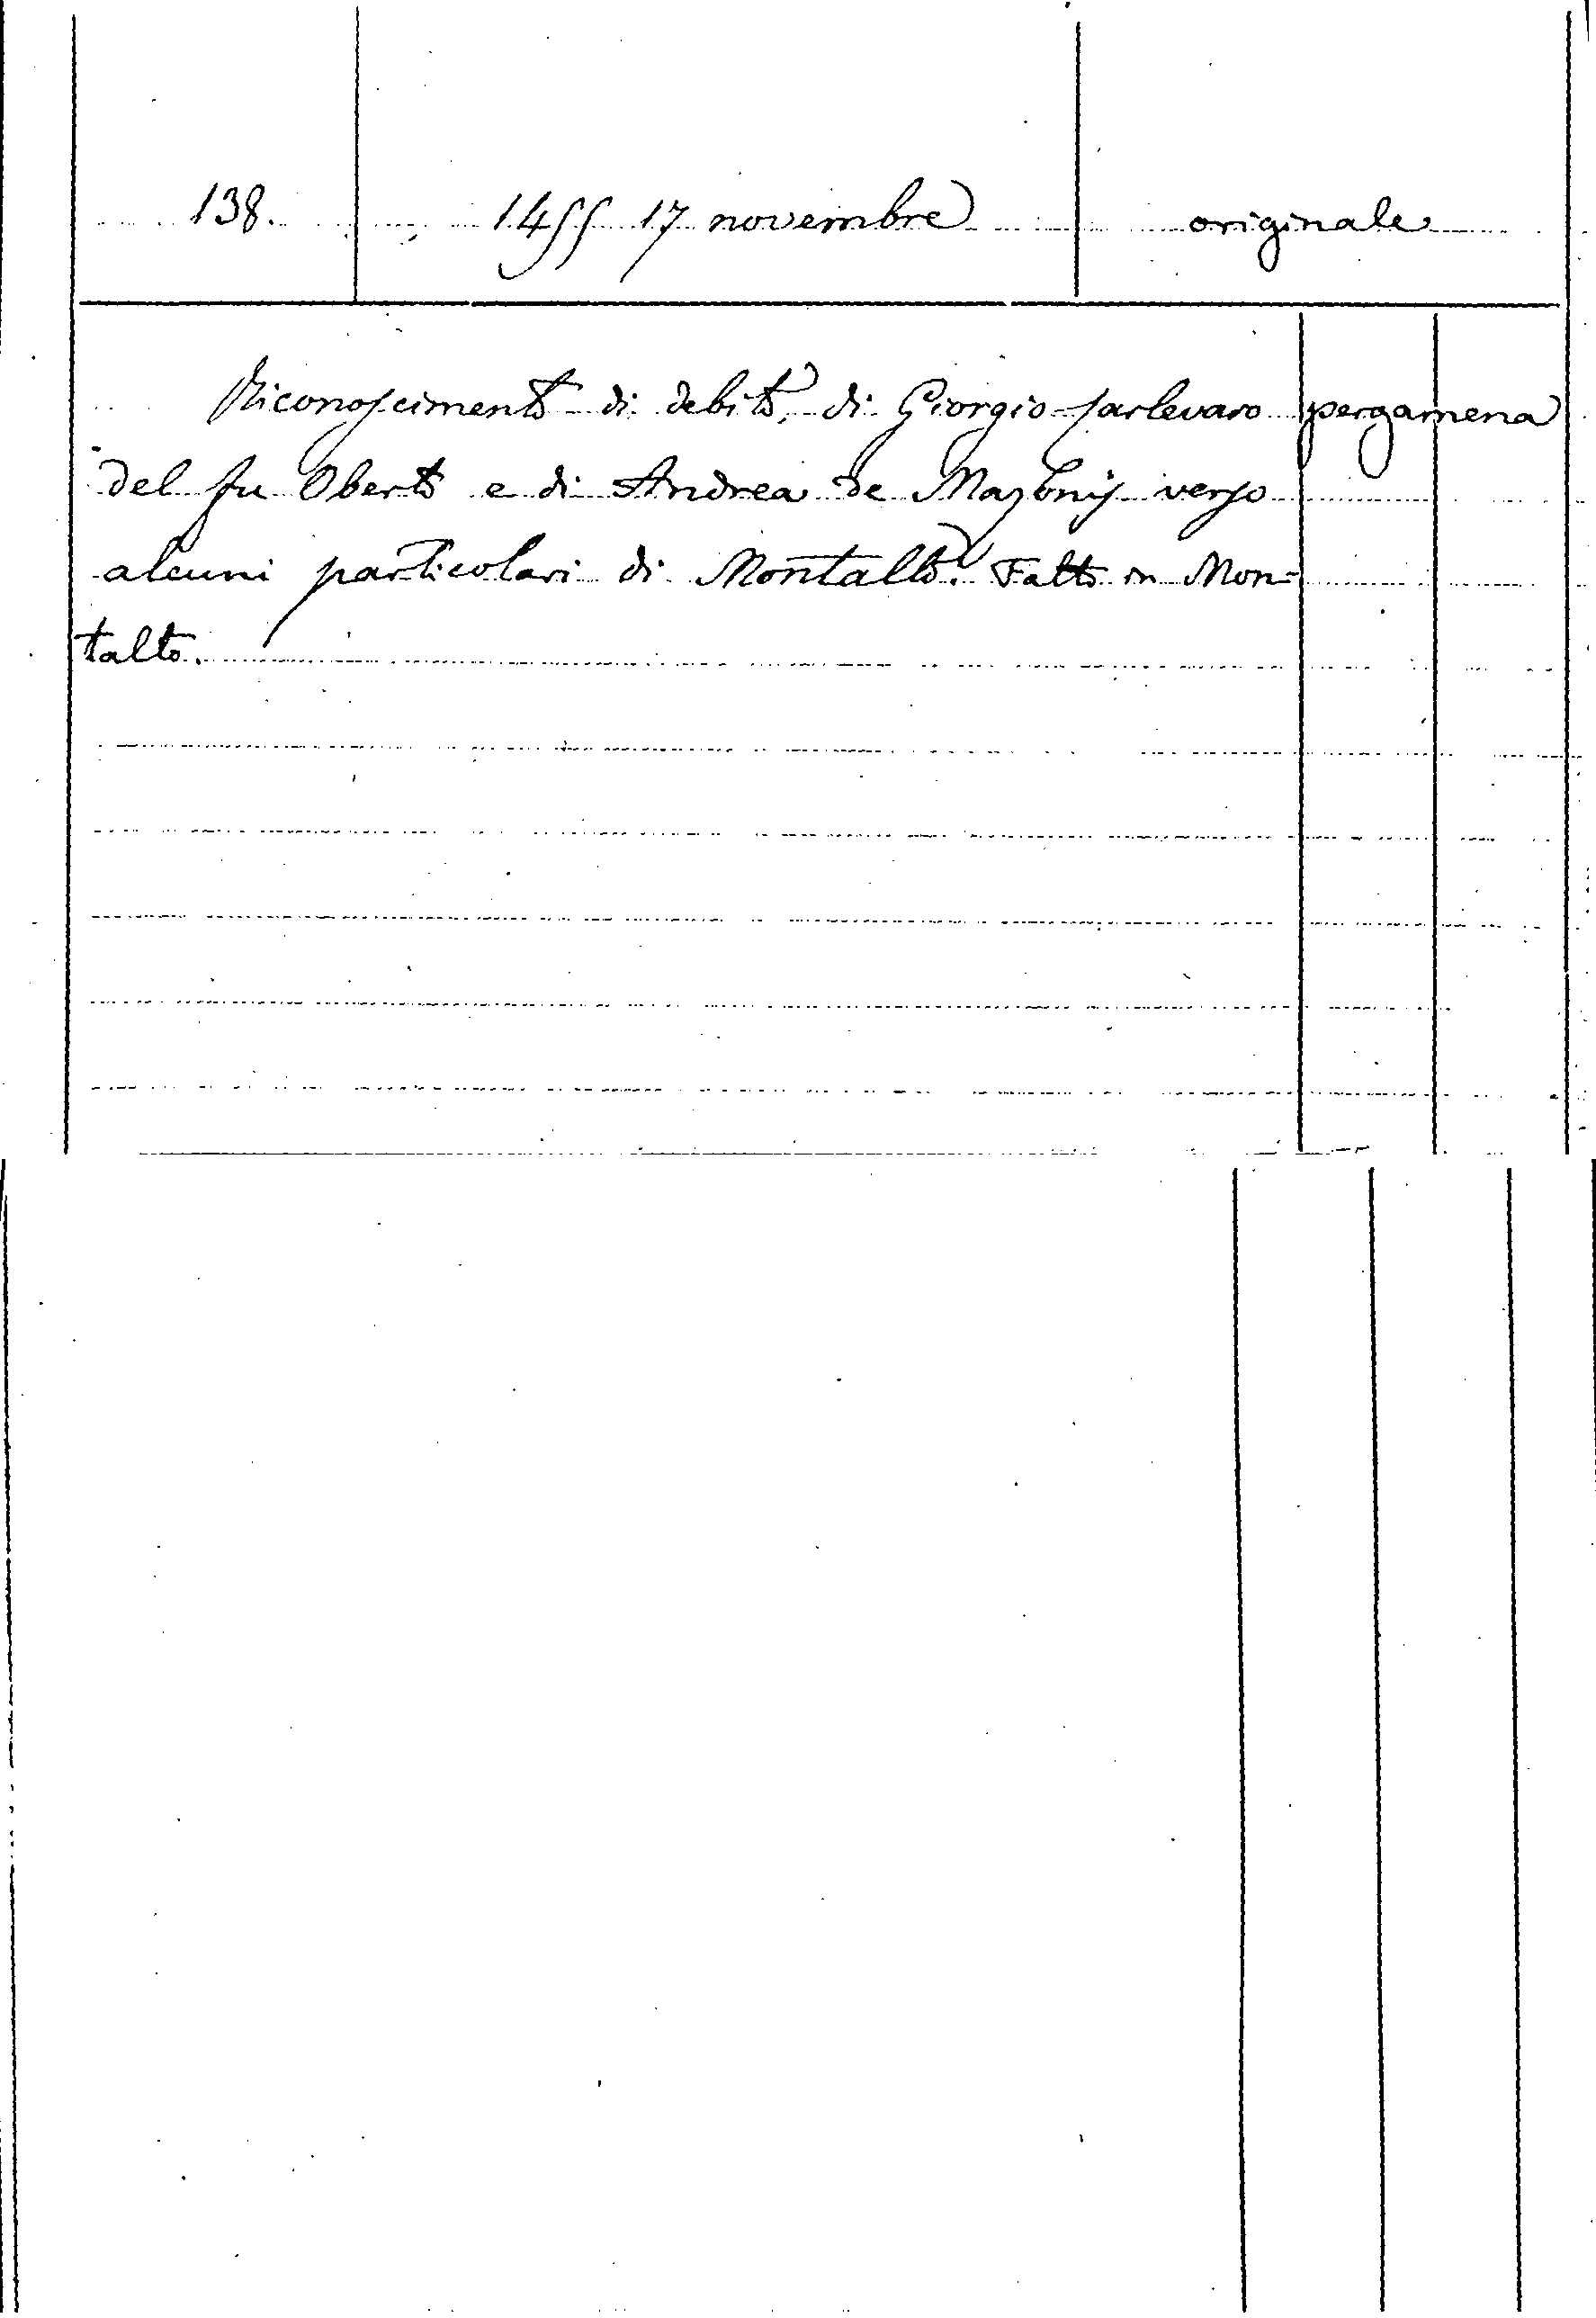 138. 1455 17 novembre originale
Riconoscimento di debito, di Giorgio Carlevaro pergamena
del fu Oberto e di Andrea de Mazonis verso
alcuni particolari di Montalto. Fatto in Mon=
talto.